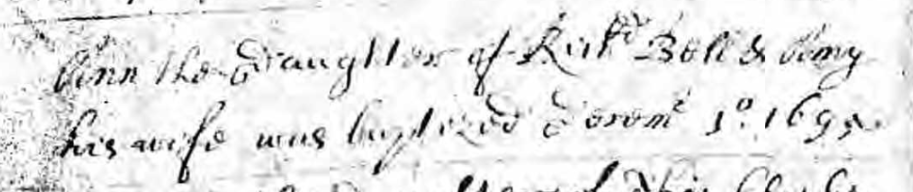 Ann the Daughter of Rich:d Bell & Amy
his wife was baptized Decem:r 1:o 1695